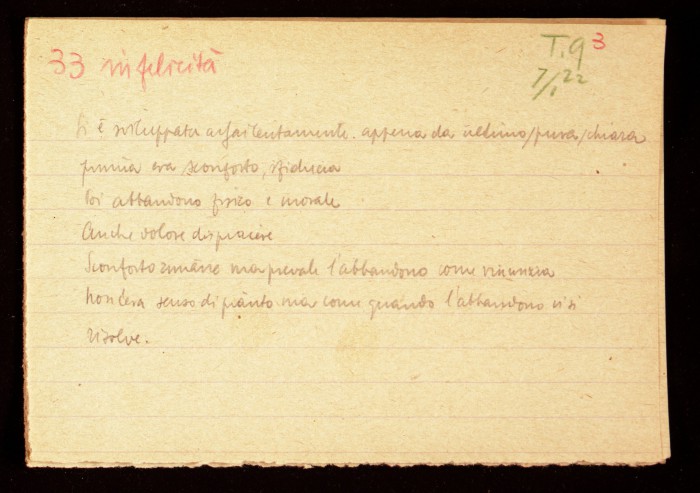 33 infelicità
T.9 3
7/1 22
Si è sviluppata assai lentamente. appena da ultimo/pura/chiara
prima era sconforto, sfiducia
Poi abbandono fisico e morale
Anche dolore dispiacere
Sconforto rimane ma prevale l'abbandono come rinunzia
Non c'era senso di pianto ma come quando l'abbandono vi si
risolve.